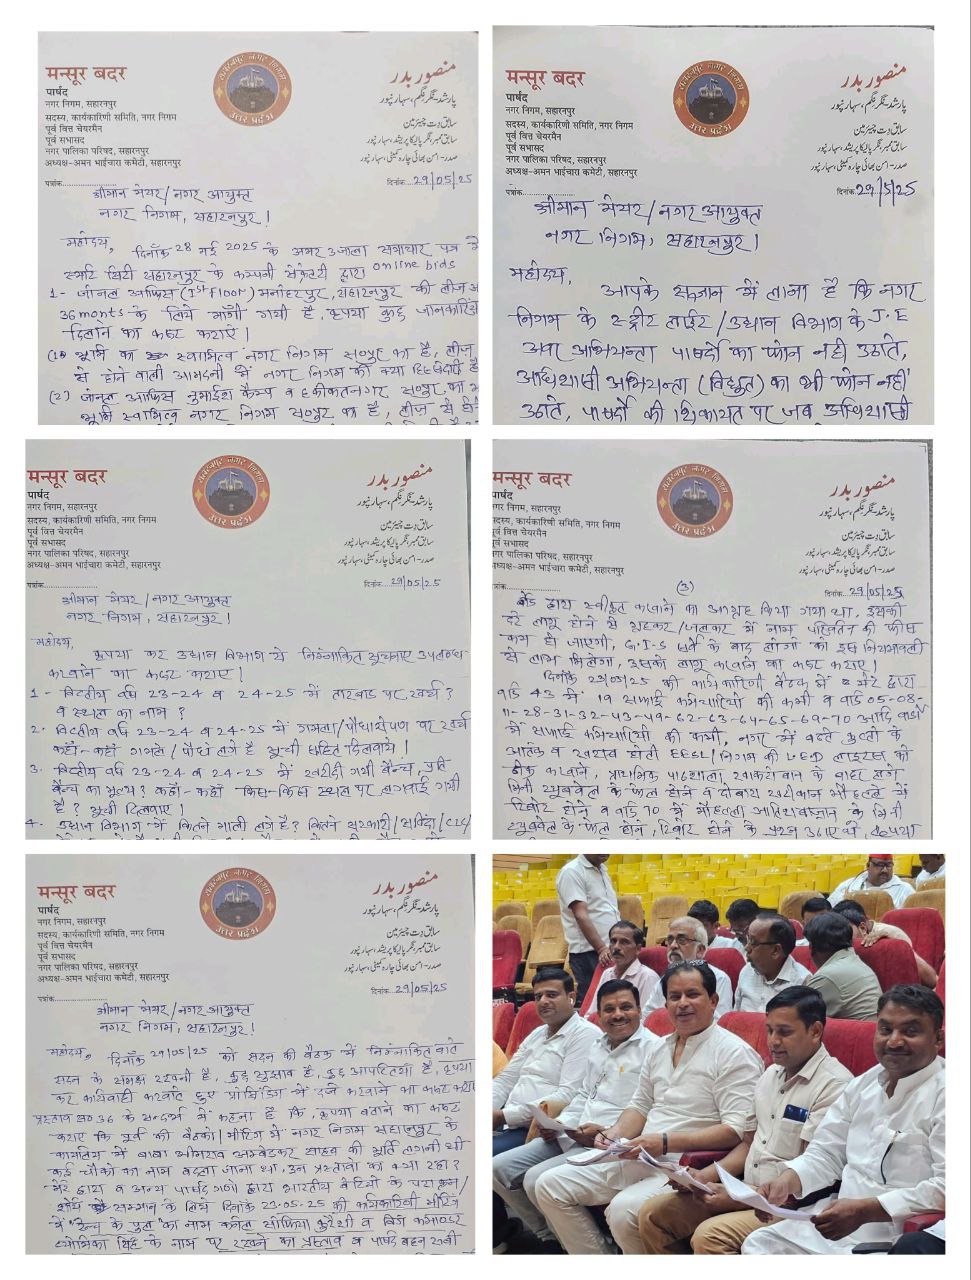 मन्सूर बदर
पार्षद
नगर निगम, सहारनपुर
सदस्य, कार्यकारिणी समिति, नगर निगम
पूर्व वित्त चेयरमैन
पूर्व सभासद
नगर पालिका परिषद, सहारनपुर
अध्यक्ष-अमन भाईचारा कमेटी, सहारनपुर
सहारनपुर नगर निगम
उत्तर प्रदेश
منصور بدر
پارشد-نگر نگم، سہارنپور
سابق وت چیئرمین
سابق ممبر نگر پالیکا پریشد، سہارنپور
صدر-امن بھائی چارہ کمیٹی، سہارنپور
पत्रांक
दिनांक 29/05/25
श्रीमान मेयर/नगर आयुक्त
नगर निगम, सहारनपुर।
महोदय,
दिनाँक 28 मई 2025 के अमर उजाला समाचार पत्र में
स्मार्ट सिटी सहारनपुर के कम्पनी सेक्रेटरी द्वारा online bids
1- जोनल आफिस (1st Floor) मनोहरपुर, सहारनपुर की लीज
36 monts के लिये मांगी गयी है, कृपया कुछ जानकारियां
दिलाने का कष्ट कराएं।
भूमि का स्वामित्व नगर निगम स०पुर का है, लीज
से होने वाली आमदनी में नगर निगम की क्या हिस्सेदारी है
(2) जोनल आफिस नुमाईश कैम्प व हकीकतनगर स०पुर का
भूमि स्वामित्व नगर निगम स०पुर का है, लीज से होने
मन्सूर बदर
पार्षद
नगर निगम, सहारनपुर
सदस्य, कार्यकारिणी समिति, नगर निगम
पूर्व वित्त चेयरमैन
पूर्व सभासद
नगर पालिका परिषद, सहारनपुर
अध्यक्ष-अमन भाईचारा कमेटी, सहारनपुर
सहारनपुर नगर निगम
उत्तर प्रदेश
منصور بدر
پارشد-نگر نگم، سہارنپور
سابق وت چیئرمین
سابق ممبر نگر پالیکا پریشد، سہارنپور
صدر-امن بھائی چارہ کمیٹی، سہارنپور
पत्रांक
दिनांक 29/5/25
श्रीमान मेयर/नगर आयुक्त
नगर निगम, सहारनपुर।
महोदय,
आपके सज्ञान में लाना है कि नगर
निगम के स्ट्रीट लाईट/उद्यान विभाग के J.E
अवर अभियन्ता पार्षदों का फोन नही उठाते,
अधिशासी अभियन्ता (विद्युत) का भी फोन नहीं
उठाते, पार्षदों की शिकायत पर जब अधिशासी
मन्सूर बदर
पार्षद
नगर निगम, सहारनपुर
सदस्य, कार्यकारिणी समिति, नगर निगम
पूर्व वित्त चेयरमैन
पूर्व सभासद
नगर पालिका परिषद, सहारनपुर
अध्यक्ष-अमन भाईचारा कमेटी, सहारनपुर
सहारनपुर नगर निगम
उत्तर प्रदेश
منصور بدر
پارشد-نگر نگم، سہارنپور
سابق وت چیئرمین
سابق ممبر نگر پالیکا پریشد، سہارنپور
صدر-امن بھائی چارہ کمیٹی، سہارنپور
पत्रांक
दिनांक 29/05/25
श्रीमान मेयर/नगर आयुक्त
नगर निगम, सहारनपुर।
महोदय,
कृपया कर उद्यान विभाग से निम्नांकित सूचनाए उपलब्ध
कराने का कष्ट कराएं।
1- वित्तीय वर्ष 23-24 व 24-25 में तारबाड़ पर खर्च?
व स्थल का नाम?
2. वित्तीय वर्ष 23-24 व 24-25 में गमलों/पौधारोपण पर खर्च
कहाँ-कहाँ गमले/पौधे लगे है सूची सहित दिलवाये।
3. वित्तीय वर्ष 23-24 व 24-25 में खरीदी गयी बैन्च, प्रति
बैन्च का मूल्य? कहाँ-कहाँ किस-किस स्थल पर लगवाई गयी
है? सूची दिलवाए।
4. उद्यान विभाग में कितने माली लगे है? कितने सरकारी/संविदा/
मन्सूर बदर
पार्षद
नगर निगम, सहारनपुर
सदस्य, कार्यकारिणी समिति, नगर निगम
पूर्व वित्त चेयरमैन
पूर्व सभासद
नगर पालिका परिषद, सहारनपुर
अध्यक्ष-अमन भाईचारा कमेटी, सहारनपुर
सहारनपुर नगर निगम
उत्तर प्रदेश
منصور بدر
پارشد-نگر نگم، سہارنپور
سابق وت چیئرمین
سابق ممبر نگر پالیکا پریشد، سہارنپور
صدر-امن بھائی چارہ کمیٹی، سہارنپور
पत्रांक
(3)
दिनांक 29/05/25
बोर्ड द्वारा स्वीकृत कराने का आग्रह किया गया था, उसकी
दरे लागू होने से गृहकर/जलकर में नाम परिवर्तन की फीस
कम हो जाएगी, G.I.S सर्वे के बाद लोगो को इस नियमावली
से लाभ मिलेगा, उसको लागू कराने का कष्ट कराए।
दिनाँक 23/05/25 की कार्यकारिणी बैठक में मेरे द्वारा
वार्ड 43 में 19 सफाई कर्मचारियों की कमी व वार्ड 05-08-
11-28-31-32-43-49-62-63-64-65-69-70 आदि वार्डों
में सफाई कर्मचारियों की कमी, नगर में बढते कुत्तों के
आतंक व खराब होती EESL/निगम की LED लाइट्स को
ठीक कराने, प्राथमिक पाठशाला, के बाहर लगे
मिनी ट्यूबवेल के फेल होने व दोबारा मौहल्ले में
रिबोर होने व वार्ड 70 में मौहल्ला आतिशबाजान के मिनी
ट्यूबवेल के फेल होने, रिबोर होने के प्रश्न उठाए थे, कृपया
मन्सूर बदर
पार्षद
नगर निगम, सहारनपुर
सदस्य, कार्यकारिणी समिति, नगर निगम
पूर्व वित्त चेयरमैन
पूर्व सभासद
नगर पालिका परिषद, सहारनपुर
अध्यक्ष-अमन भाईचारा कमेटी, सहारनपुर
सहारनपुर नगर निगम
उत्तर प्रदेश
منصور بدر
پارشد-نگر نگم، سہارنپور
سابق وت چیئرمین
سابق ممبر نگر پالیکا پریشد، سہارنپور
صدر-امن بھائی چارہ کمیٹی، سہارنپور
पत्रांक
दिनांक 29/05/25
श्रीमान मेयर/नगर आयुक्त
नगर निगम, सहारनपुर।
महोदय, दिनाँक 29/05/25 को सदन की बैठक में निम्नांकित बाते
सदन के समक्ष रखनी है, कुछ सुझाव है, कुछ आपत्तियां है, कृपया
कर कार्यवाही करवाते हुए प्रोसिडिंग में दर्ज करवाने का कष्ट कराए
प्रस्ताव स० 36 के सन्दर्भ में कहना है कि, कृपया बताने का कष्ट
कराए कि पूर्व की बैठको/मीटिंग में नगर निगम सहारनपुर के
कार्यालय में बाबा भीमराव अम्बेडकर साहब की मूर्ति लगनी थी
कई चौकों का नाम बदला जाना था, उन प्रस्तावों का क्या रहा?
मेरे द्वारा व अन्य पार्षद गणों द्वारा भारतीय बेटियों के पराक्रम/
शौर्य सम्मान के लिये दिनांक 23-05-25 की कार्यकारिणी मीटिंग
में के पुल का नाम कर्नल सोफिया कुरैशी व विंग कमाण्डर
व्योमिका सिंह के नाम पर रखने का प्रस्ताव व पार्षद बहन रूबी